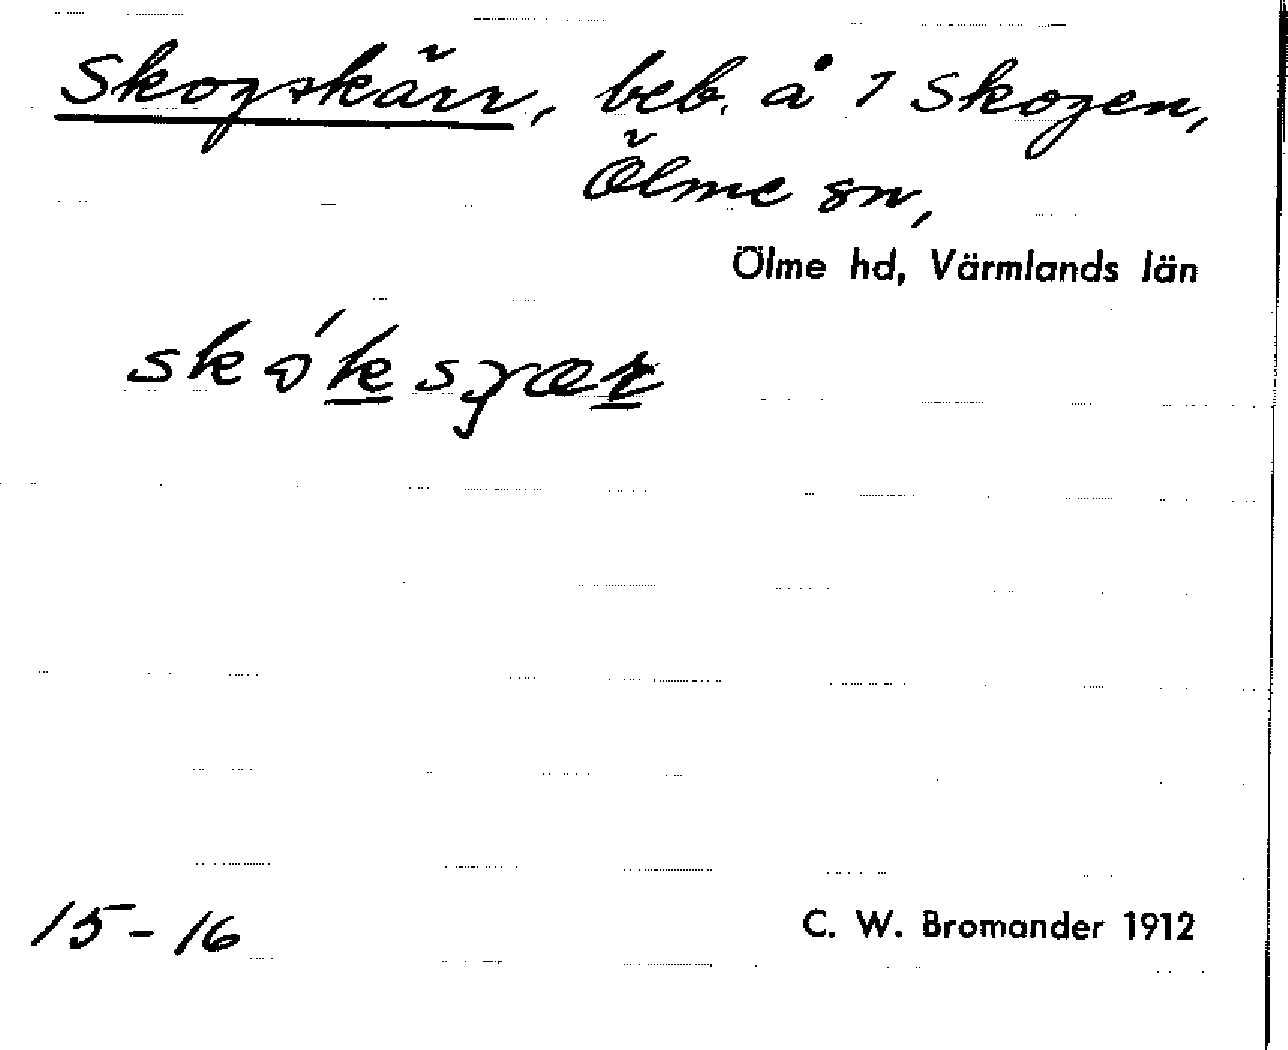 Skogskärr, beb. å 1 Skogen,
Ölme sn,
Ölme hd, Värmlands län
15-16
C. W. Bromander 1912